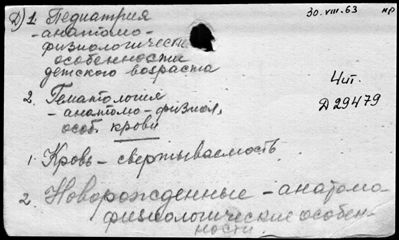 2) 1. Педиатрия
30.VIII.63 нр
- анатомо-
физиологически
особенности
детского возраста
Чит.
Д 29479
2. Гематология
- анатомо-физиол,
особ. крови
1. Кровь - свертываемость
2. Новорожденные - анатомо
физиологические особен-
ности.